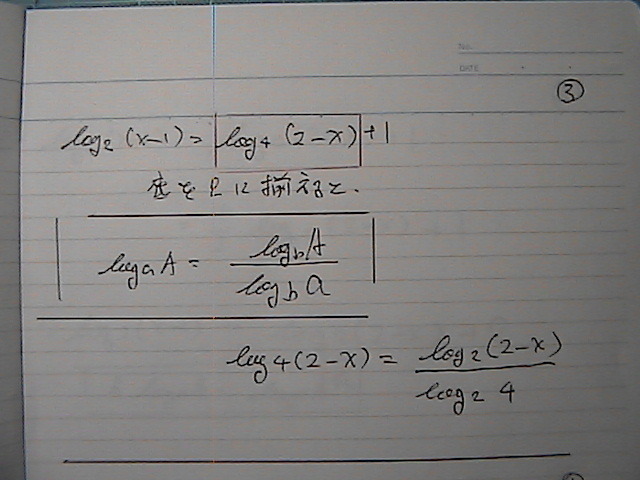 No.
DATE
③
log₂(x-1) = log₄(2-x) + 1
底を2に揃えると.
logₐA = log_b A / log_b a
log₄(2-x) = log₂(2-x) / log₂4